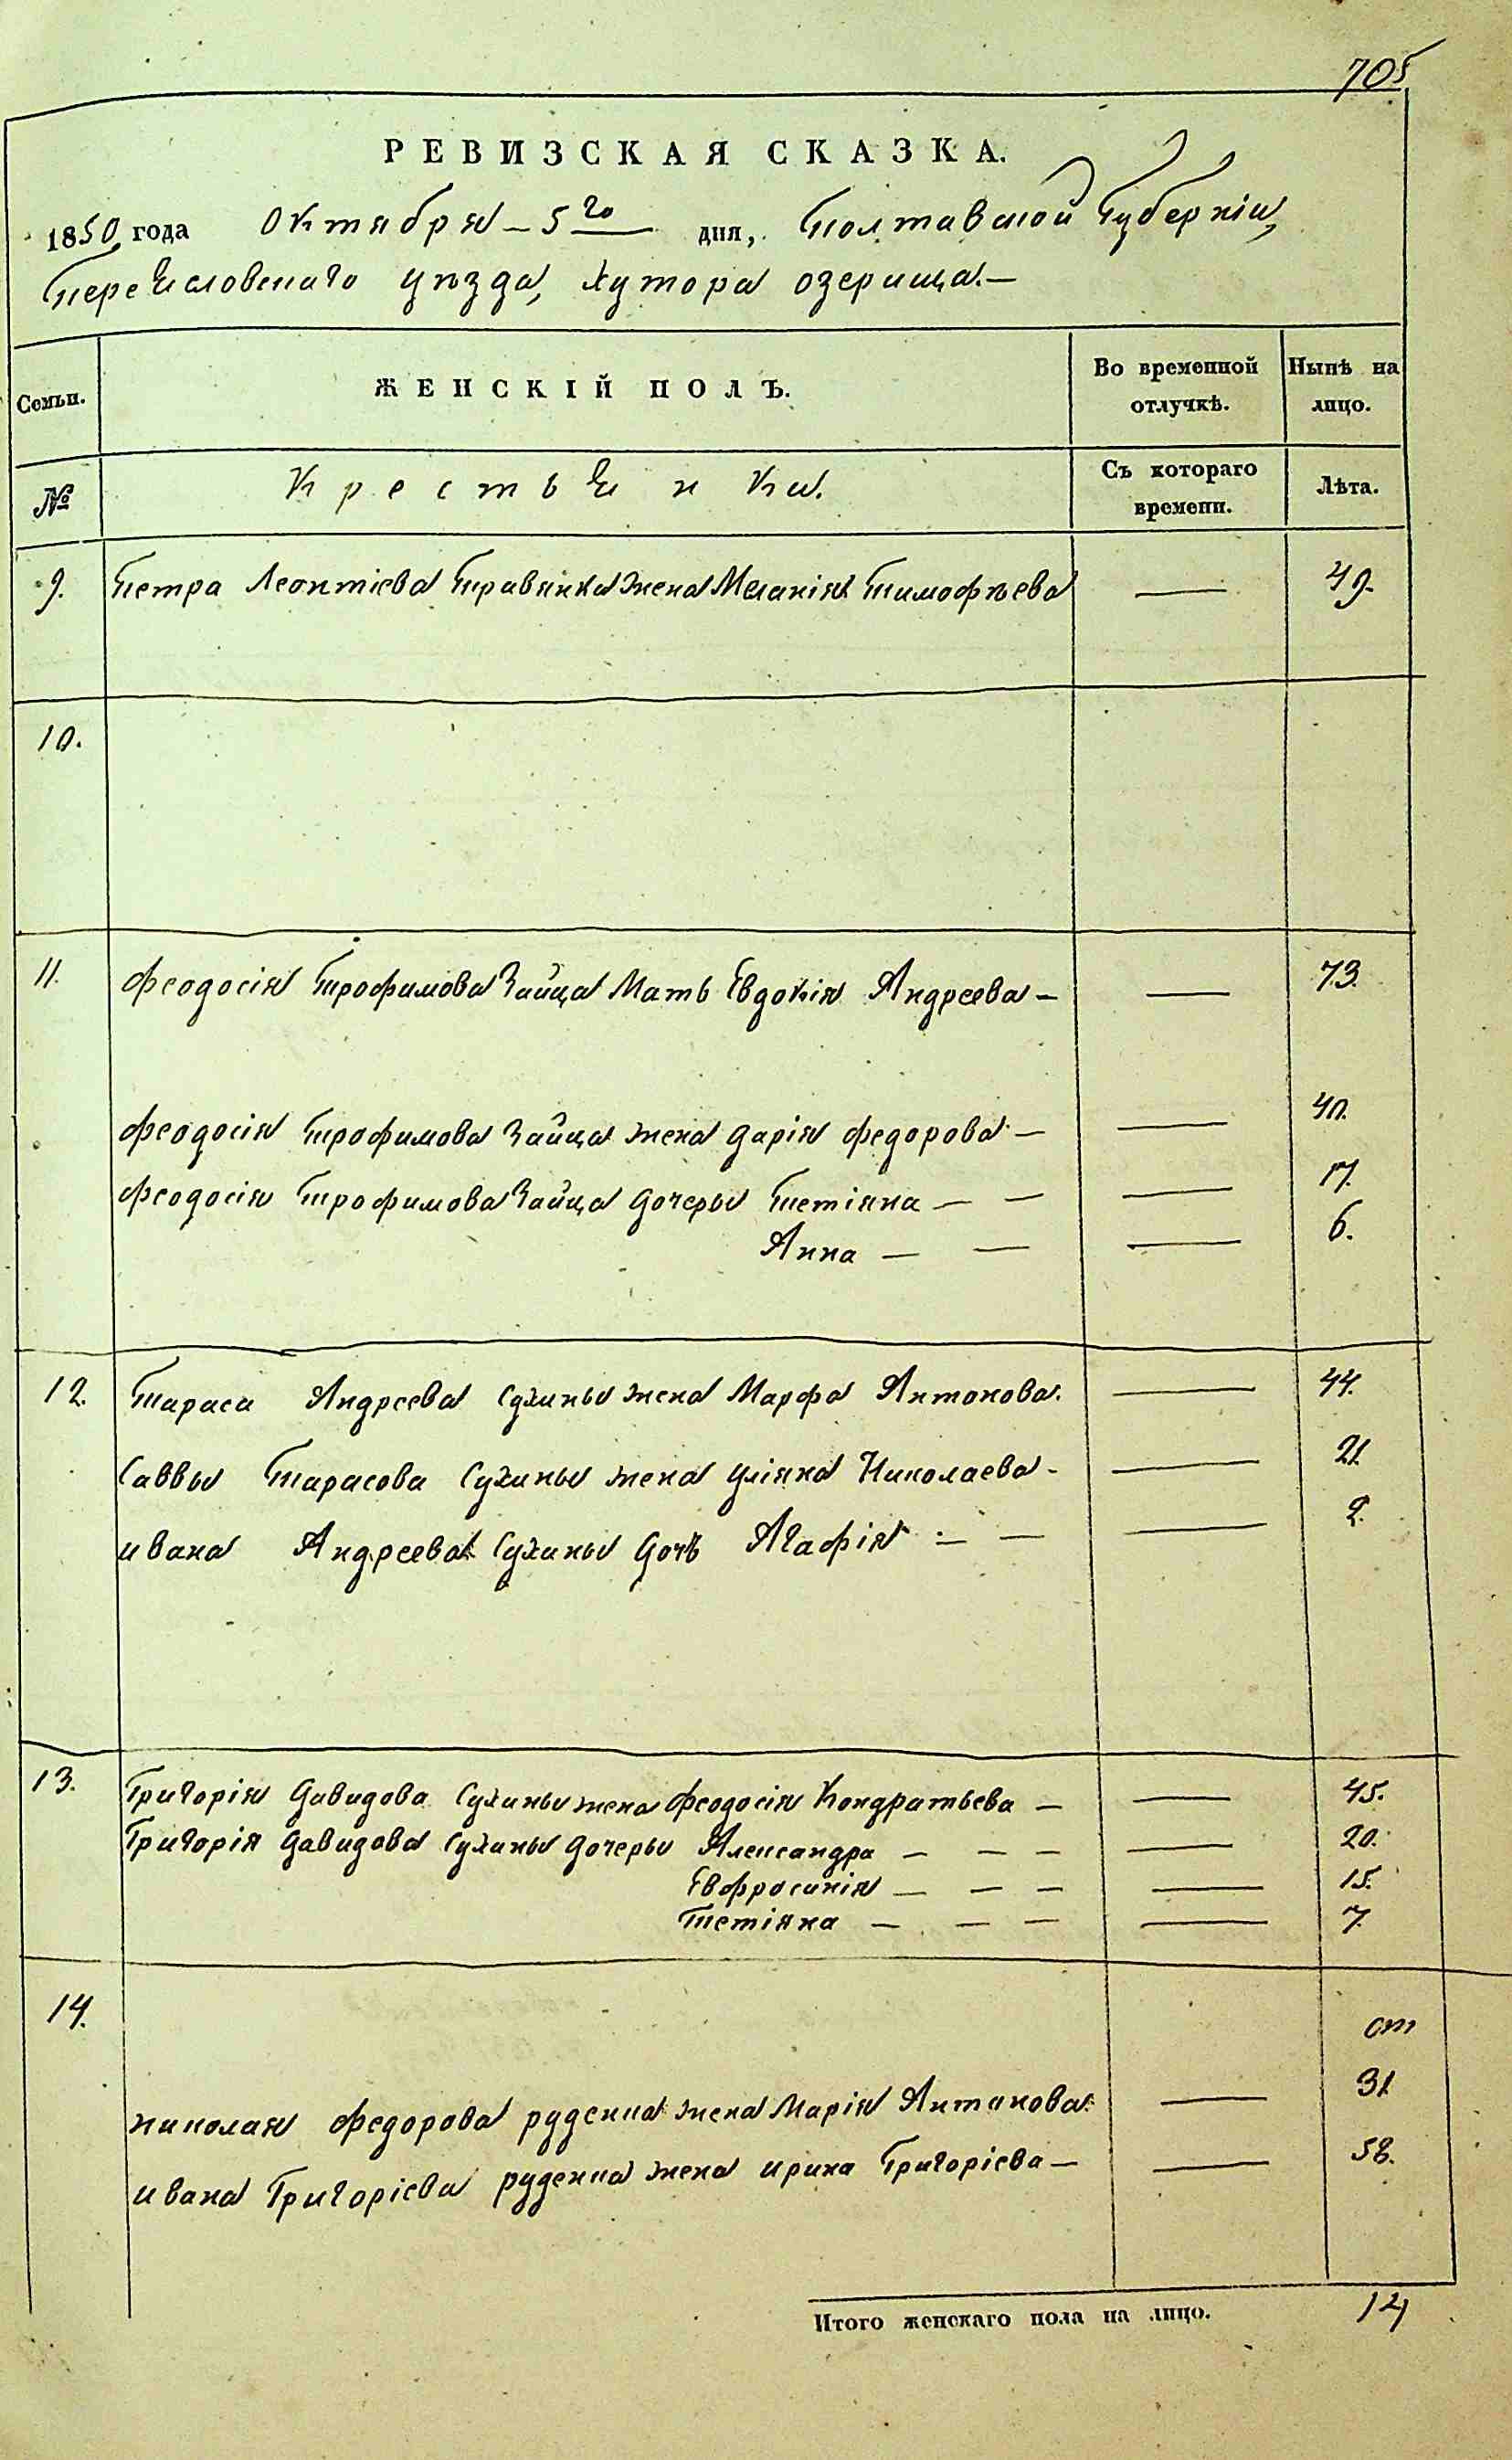 705
РЕВИЗСКАЯ СКАЗКА.
1850 года Октября - 5го дня, Полтавской Губерніи,
Переясловскаго уѣзда, хутора озерища. —
Семьи. ЖЕНСКІЙ ПОЛЪ. Во временной отлучкѣ. Нынѣ на лицо.
№ Крестьянки. Съ котораго времени. Лѣта.
9. Петра Леонтіева Правянка жена Меланія Тимофѣева — 49.
10.
11. Феодосія Трофимова Зайца Мать Евдокія Андреева — — 73.
Феодосія Трофимова Зайца жена Дарія Федорова — — 40.
Феодосія Трофимова Зайца дочеры Тетіяна — — — 17.
Анна — — — 6.
12. Тараса Андреева Сухины жена Марфа Антонова. — 44.
Саввы Тарасова Сухины жена Уліяна Николаева - — 21.
ивана Андреева Сухины дочь Агафія — — — 2.
13. Григорія Давидова Сухины жена Феодосія Кондратьева — — 45.
Григорія Давидова Сухины дочеры Александра — — — — 20.
Евфросинія — — — — 15.
Тетіяна — — — — 7.
14.
николая Федорова руденка жена Марія Антонова — 31.
ивана Григоріева руденка жена ирина Григоріева — — 58.
Итого женскаго пола на лицо. 14